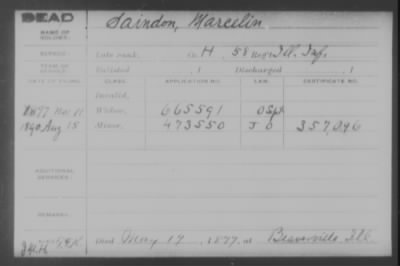 DEAD Saindon, Marcelin
NAME OF SOLDIER:
SERVICE: Late rank, Co. H, 58 Reg't Ill. Inf.
TERM OF SERVICE: Enlisted , 1 Discharged , 1
DATE OF FILING. CLASS. APPLICATION NO. LAW. CERTIFICATE NO.
Invalid,
1897 Nov 11 Widow, 665591
1890 Aug 18 Minor, 473550 J O 357,046
ADDITIONAL SERVICES:
REMARKS:
Died May 17, 1877, at Beaverville, Ill.